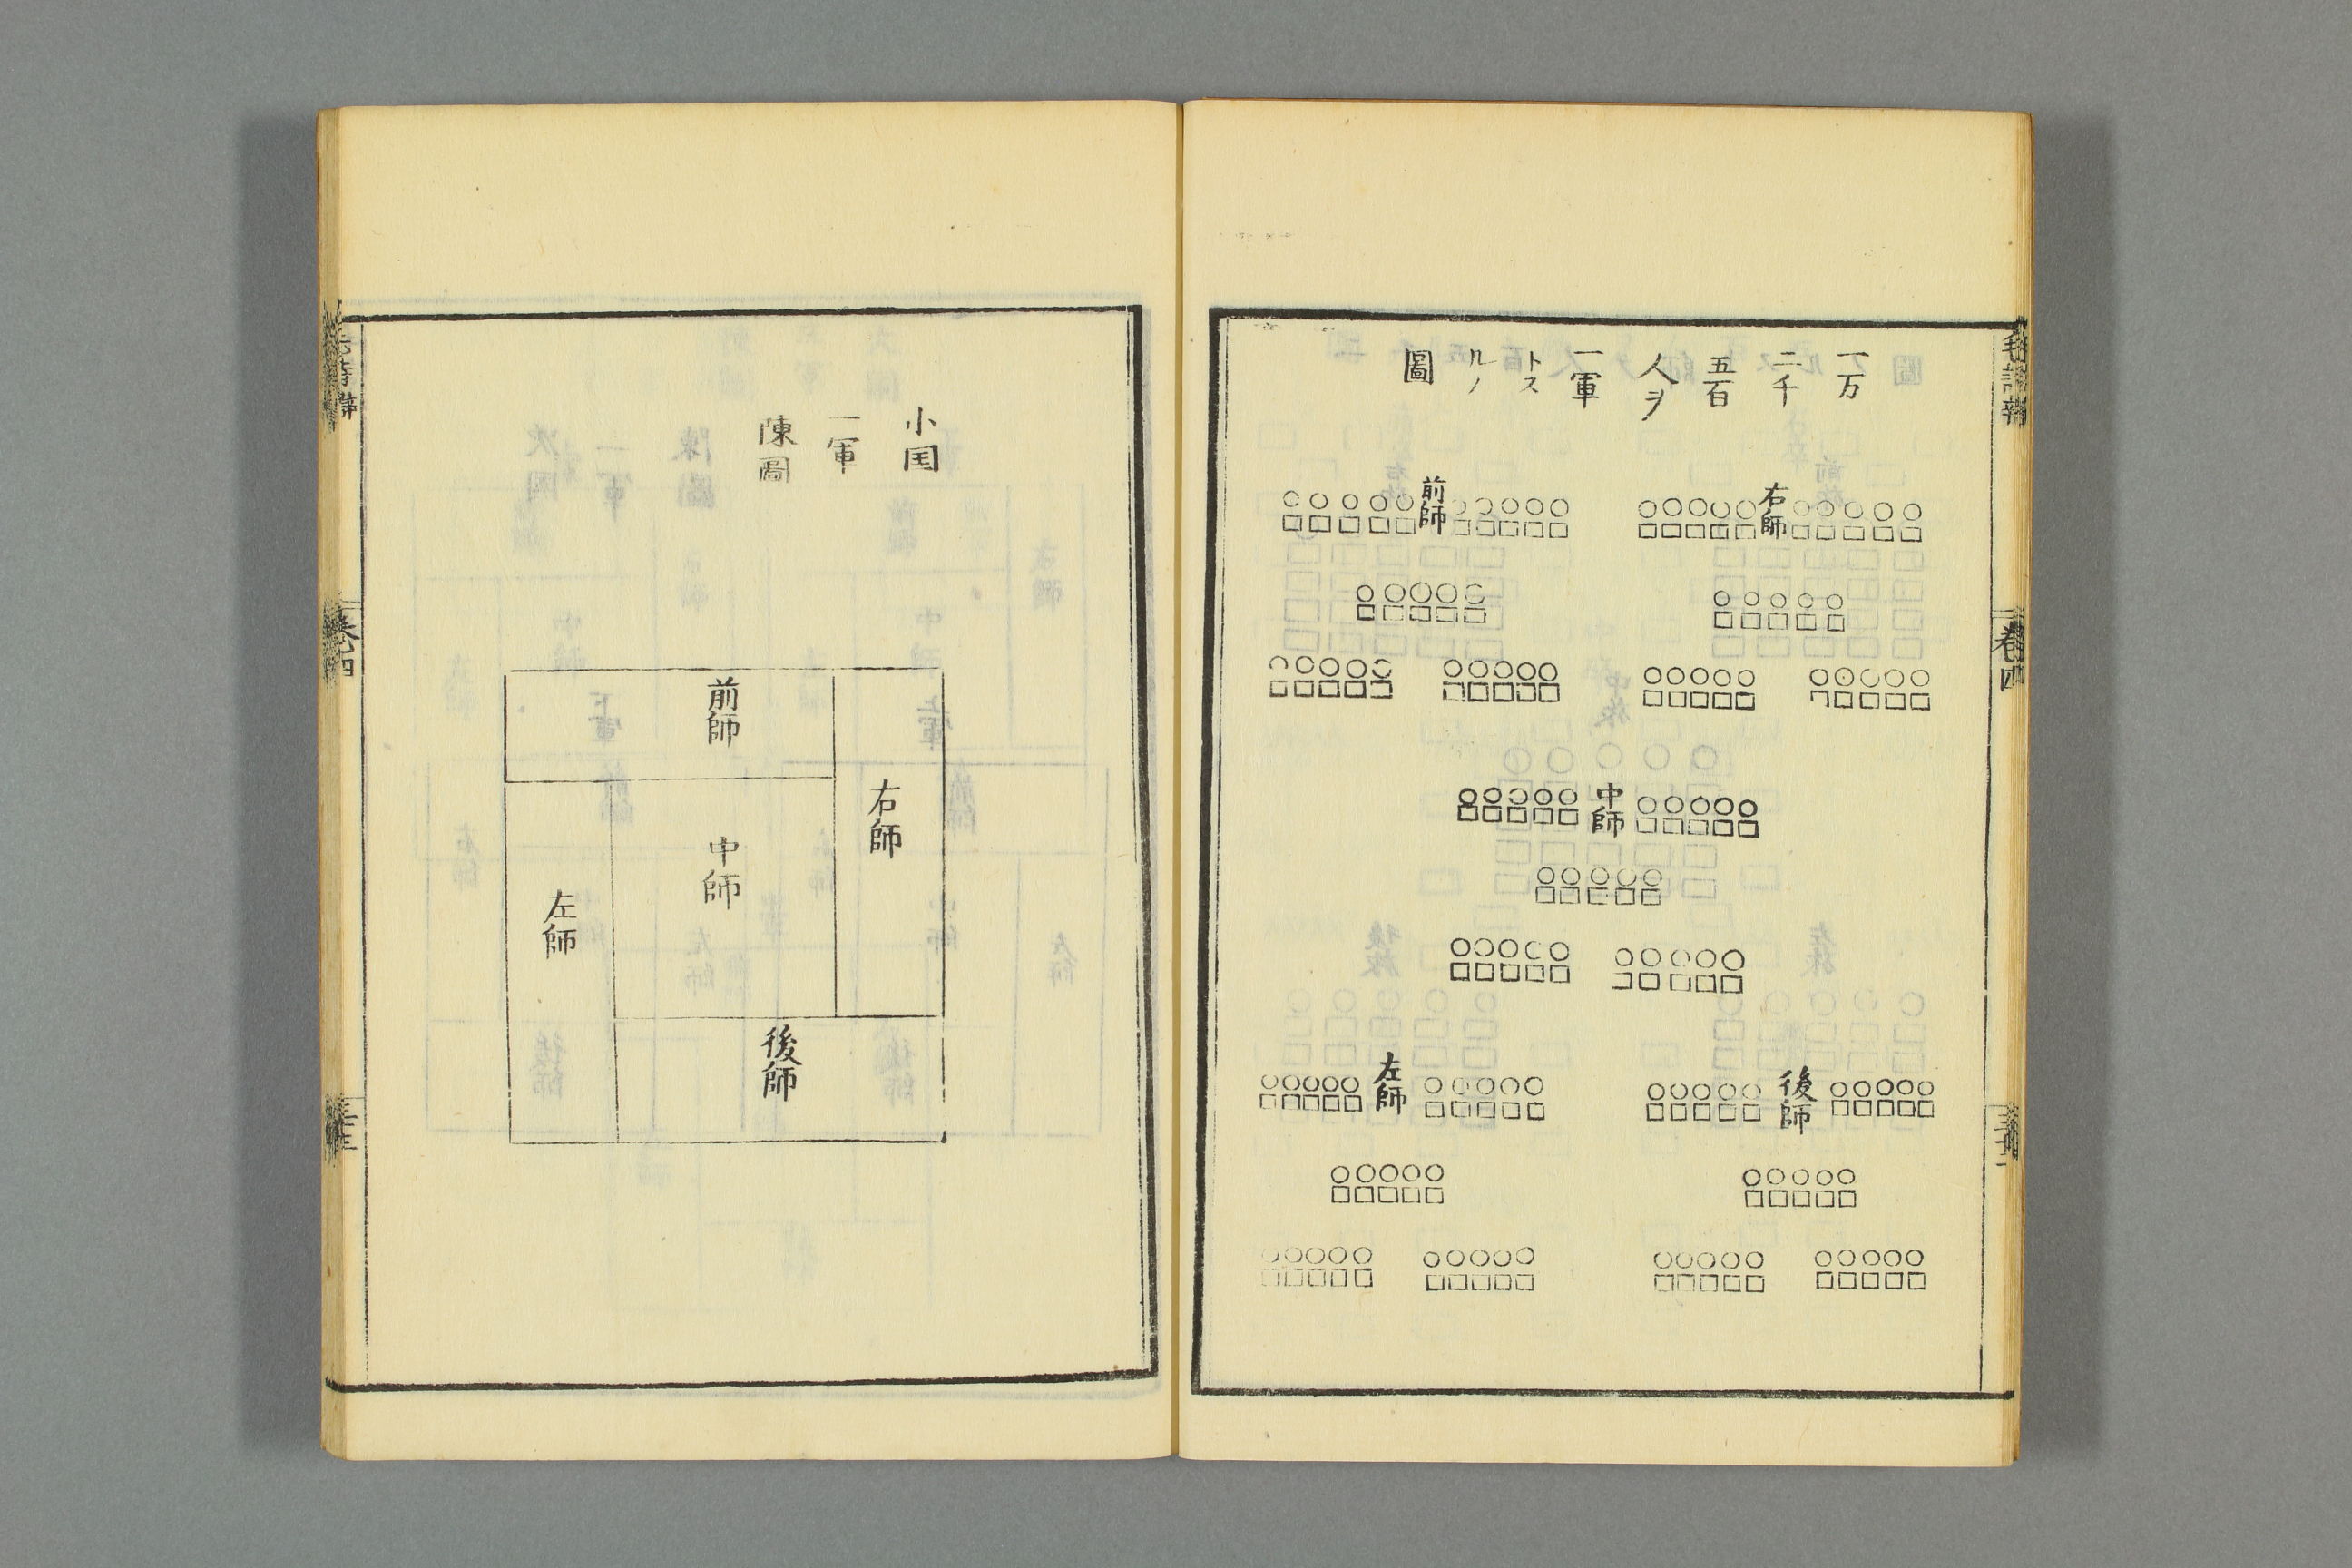 一万
二千
五百
人ヲ
一軍
トス
ルノ
圖
右師
前師
中師
後師
左師
卷四
小囯
一軍
陳圖
前師
右師
中師
左師
後師
卷四